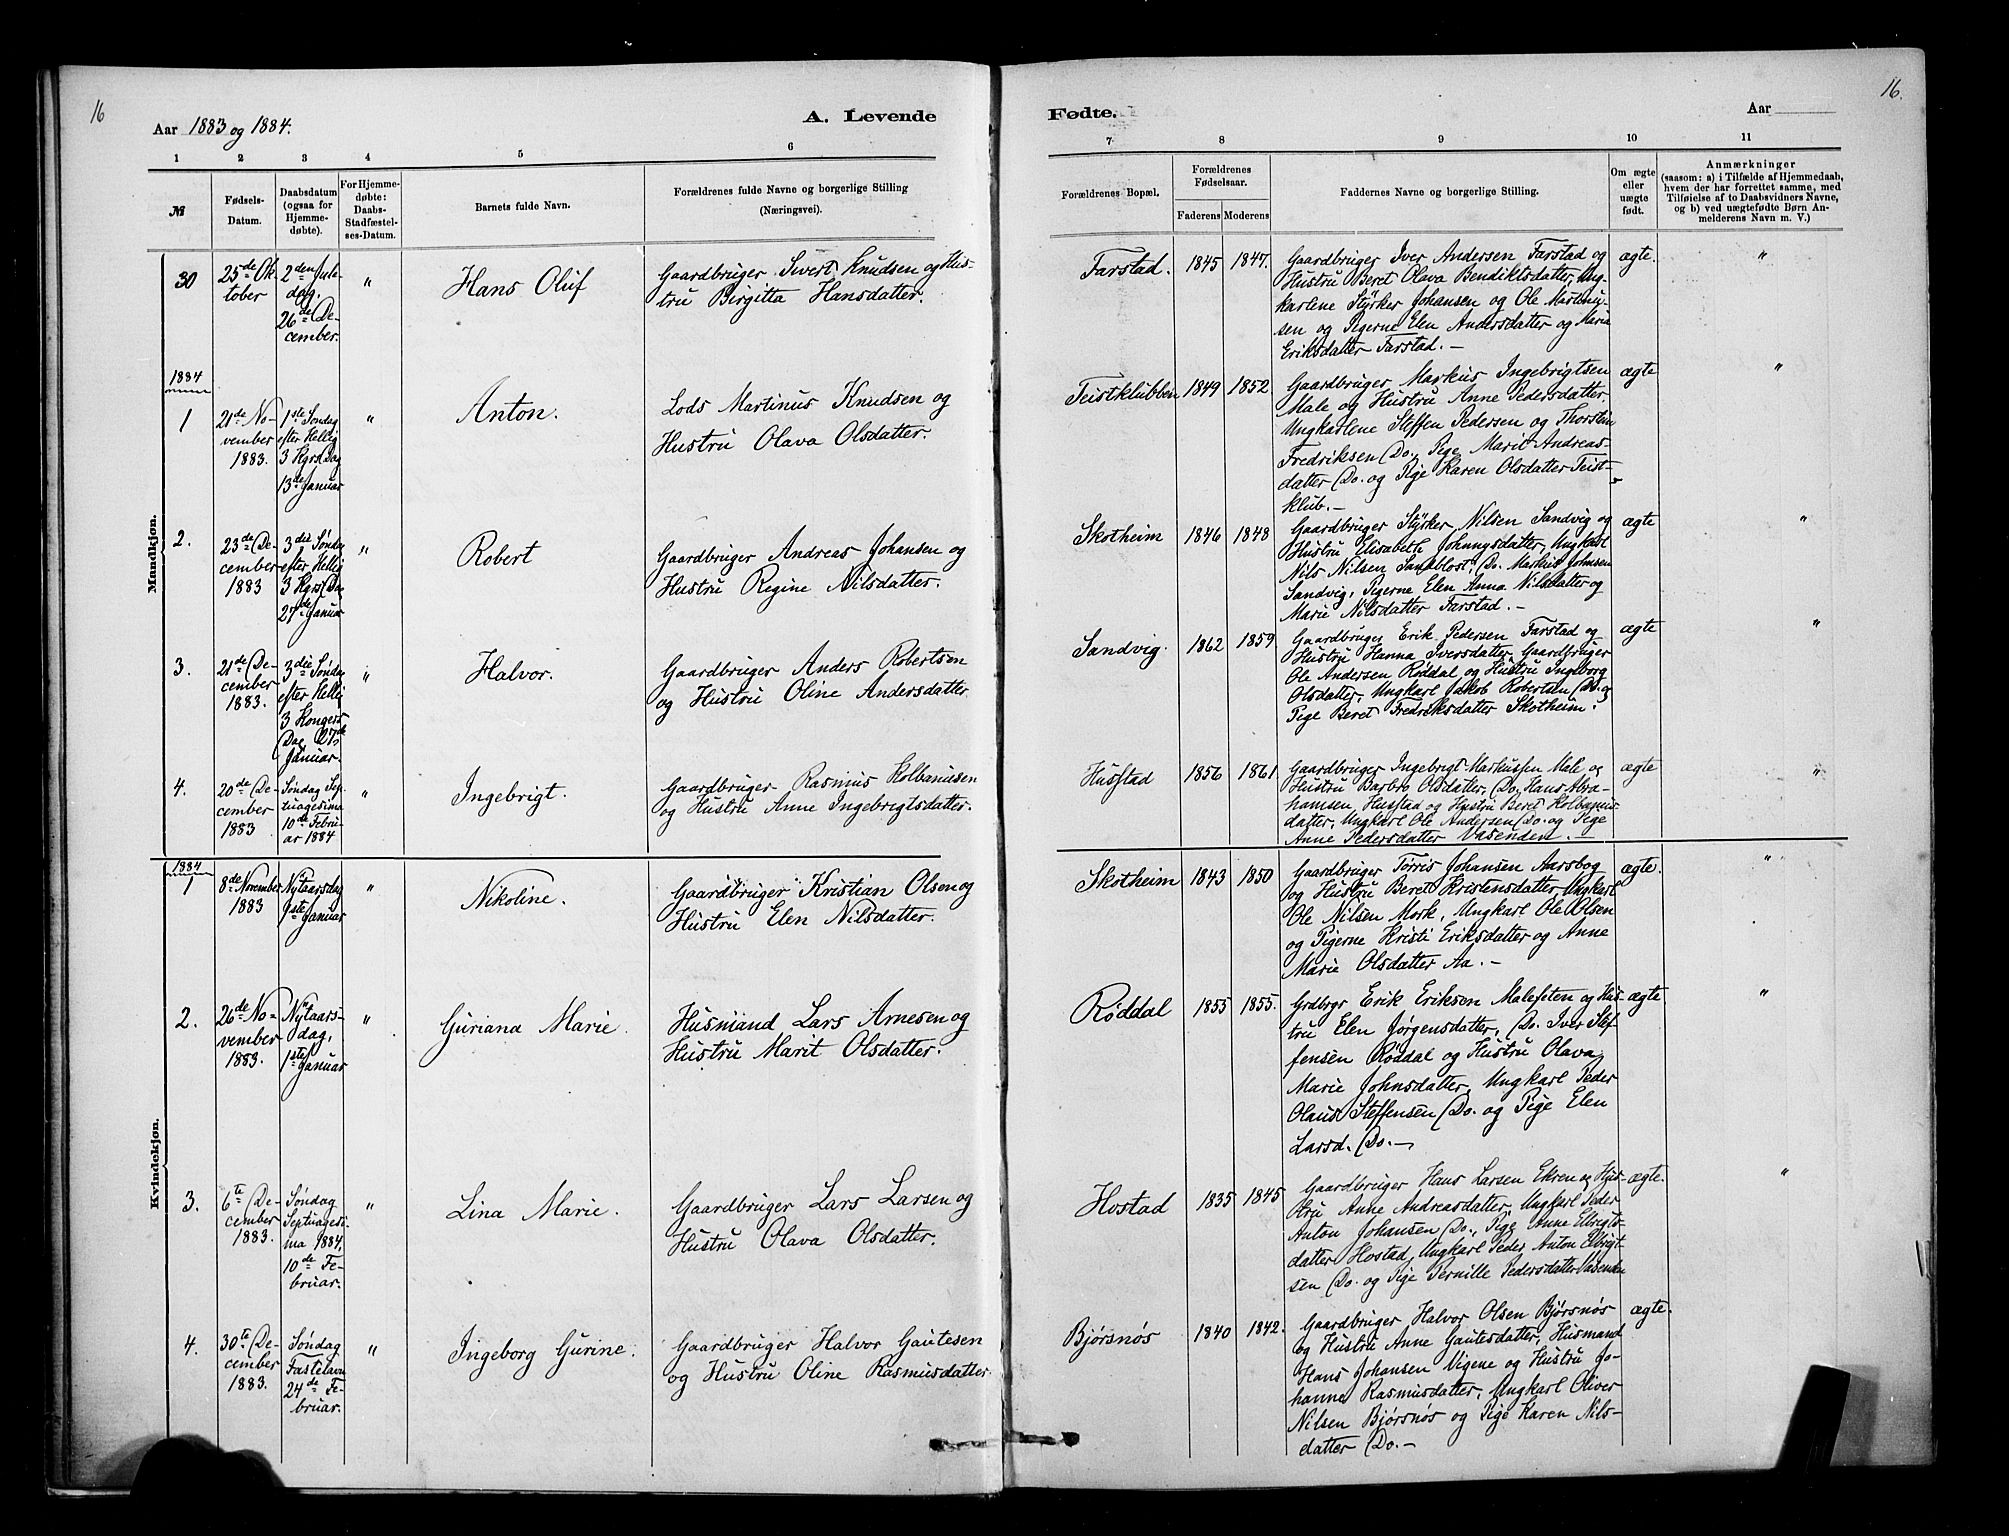 16
Aar 1883 og 1884.
A. Levende
1 2 3 4 5 6
№
Fødsels-
Datum.
Daabsdatum
(ogsaa for
Hjemme-
døbte).
For Hjemme-
døbte:
Daabs-
Stadfæstel-
ses-Datum.
Barnets fulde Navn.
Forældrenes fulde Navne og borgerlige Stilling
(Næringsvei).
Mandkjøn.
30
25de Ok-
tober
2den Jule-
dag.
26de De-
cember.
"
Hans Oluf
Gaardbruger Sivert Knudsen og Hus-
tru Birgitta Hansdatter.
1884
1
21de No-
vember
1883.
1ste Søndag
efter Hellig
3 Kgrs Dag
13de Januar
"
Anton.
Lods Martinus Knudsen og
Hustru Olava Olsdatter.
2.
23de De-
cember
1883
3die Søndag
efter Hellig
3 Kgrs Da
27de Januar
"
Robert
Gaardbruger Andreas Johansen og
Hustru Regine Nilsdatter.
3.
21de De-
cember
1883.
3die Søndag
efter Hellig
3 Kongers
Dag 27de
Januar.
"
Halvor.
Gaardbruger Anders Robertsen
og Hustru Oline Andersdatter
4.
20de De-
cember
1883
Søndag Sep-
tuagesima
10de Febru-
ar 1884
"
Ingebrigt.
Gaardbruger Rasmus Kolbanusen
og Hustru Anne Ingebrigtsdatter.
Kvindekjøn.
1884
1
8de November
1883
Nytaarsdag
1ste Januar
"
Nikoline.
Gaardbruger Kristian Olsen og
Hustru Elen Nilsdatter.
2.
26de No-
vember
1883.
Nytaars-
dag,
1ste Januar
"
Guriana Marie.
Husmand Lars Arnesen og
Hustru Marit Olsdatter.
3.
6te De-
cember
1883.
Søndag
Septuagesi-
ma 1884,
10de Fe-
bruar.
"
Lina Marie.
Gaardbruger Lars Larsen og
Hustru Olava Olsdatter.
4.
30te De-
cember
1883.
Søndag
Fastelavn
24de Fe-
bruar.
"
Ingeborg Gurine.
Gaardbruger Halvor Gautesen
og Hustru Oline Rasmusdatter
16.
Fødte.
Aar
7. 8 9 10 11
Forældrenes Bopæl.
Forældrenes
Fødselsaar.
Faderens Moderens
Faddernes Navne og borgerlige Stilling.
Om ægte
eller
uægte
født.
Anmærkninger
(saasom: a) i Tilfælde af Hjemmedaab,
hvem der har forrettet samme, med
Tilføielse af to Daabsvidners Navne,
og b) ved uægtefødte Børn An-
melderens Navn m. V.)
Farstad. 1845 1847.
Gaardbruger Iver Andersen Farstad og
Hustru Beret Olava Bendiktsdatter, Ung-
karlene Styrker Johansen og Ole Martinu-
sen og Pigerne Elen Andersdatter og Maria
Eriksdatter Farstad. —
ægte. "
Teistklubben 1849 1852.
Gaardbruger Markus Ingebrigtsen
Male og Hustru Anne Pedersdatter,
Ungkarlene Steffen Pedersen og Thorstein
Fredriksen Do., Pige Marit Andreas-
datter Do. og Pige Karen Olsdatter Teist-
klub. —
ægte "
Skotheim 1846 1848
Gaardbruger Styrker Nilsen Sandvig og
Hustru Elisabeth Johnngsdatter, Ungkarl
Nils Nilsen Sandblost, Do. Markus Johnsen
Sandvig, Pigerne Elen Anna Nilsdatter og
Marie Nilsdatter Farstad. —
ægte "
Sandvig. 1862 1859
Gaardbruger Erik Pedersen Farstad og
Hustru Hanna Iversdatter, Gaardbruger
Ole Andersen Røddal og Hustru Ingeborg
Olsdatter, Ungkarl Jakob Robertsen Do. og
Pige Beret Fredriksdatter Skotheim.
ægte "
Husstad 1856 1861
Gaardbruger Ingebrigt Markussen Male og
Hustru Barbro Olsdatter, Do. Hans Abra-
hamsen, Husstad og Hustru Beret Kolbanus-
datter, Ungkarl Ole Andersen Do. og Pige
Anne Pedersdatter Vasenden. —
ægte "
Skotheim 1843 1850
Gaardbruger Tørris Johansen Aarsbog
og Hustru Beret Kristensdatter, Ungkarl
Ole Nilsen Mork, Ungkarl Ole Olsen
og Pigerne Kristi Eriksdatter og Anne
Marie Olsdatter Aa. —
ægte. "
Røddal 1853 1855.
Grdbrgr Erik Eriksen Malefeten og Hus-
tru Elen Jørgensdatter, Do. Iver Stef
fensen Røddal og Hustru Olava
Marie Johnsdatter, Ungkarl Peder
Olaus Steffensen Do. og Pige Elen
Larsd. Do. —
ægte. "
Hostad 1835 1845
Gaardbruger Hans Larsen Ekren og Hus-
tru Anne Andreasdatter, Ungkarl Peder
Anton Johansen Do., Pige Anne Elbrigts-
datter Hostad, Ungkarl Peder Anton Elbrigt-
sen Do. og Pige Pernille Pedersdatter Vasenden
ægte. "
Bjørsnøs 1840 1842.
Gaardbruger Halvor Olsen Bjørsnøs
og Hustru Anne Gautesdatter, Husmand
Hans Johansen Vigene og Hustru Jo-
hanne Rasmusdatter, Ungkarl Oliver
Nilsen Bjørsnøs og Pige Karen Nils-
datter Do. —
ægte.